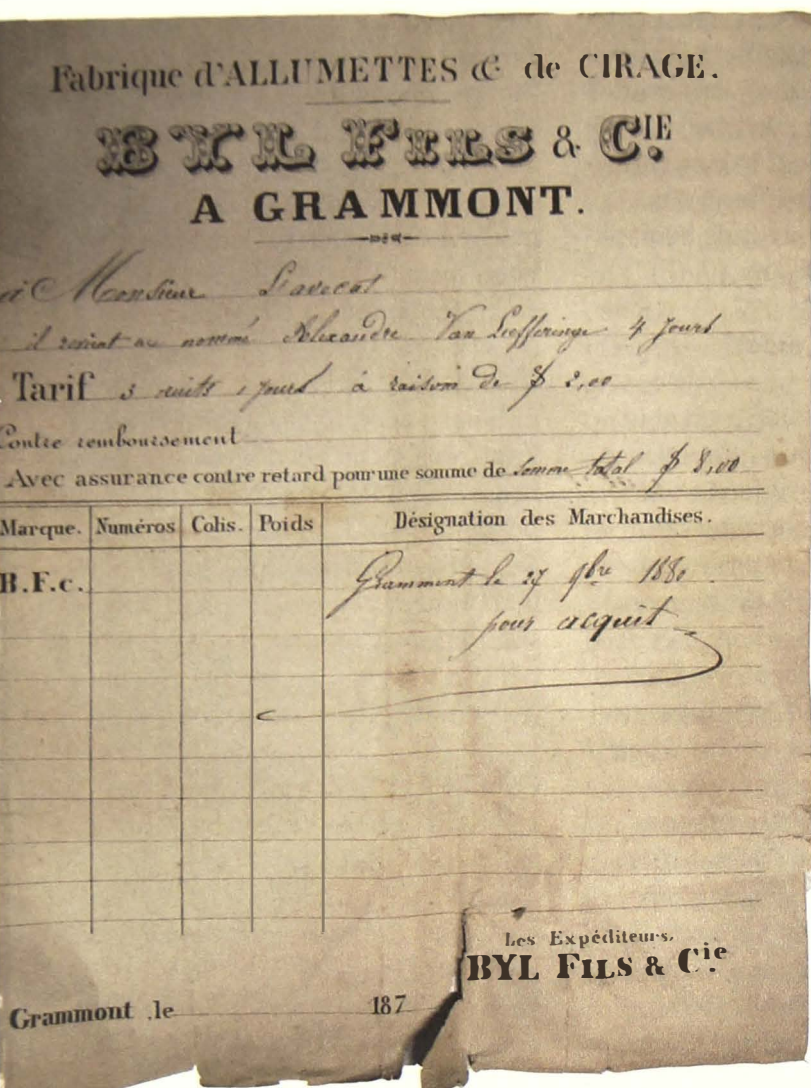 Fabrique d'ALLUMETTES & de CIRAGE.
BYL FILS & CIE.
A GRAMMONT.
Monsieur L'avocat
il revient au nommé Alexandre Van Liefferinge 4 jours
Tarif 3 nuits jours à raison de 2,00
Contre remboursement
Avec assurance contre retard pour une somme de somme total 8,00
Marque. Numéros Colis. Poids Désignation des Marchandises.
B.F.c. Grammont le 27 9bre 1880
pour acquit
Les Expéditeurs,
BYL FILS & Cie.
Grammont le 187